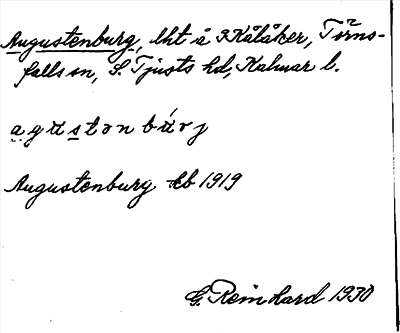 Augustenburg, lht å 3 Kålåker, Törns-
falls sn, S. Tjusts hd, Kalmar l.
Augustenburg kb 1919
G. Reinhard 1930